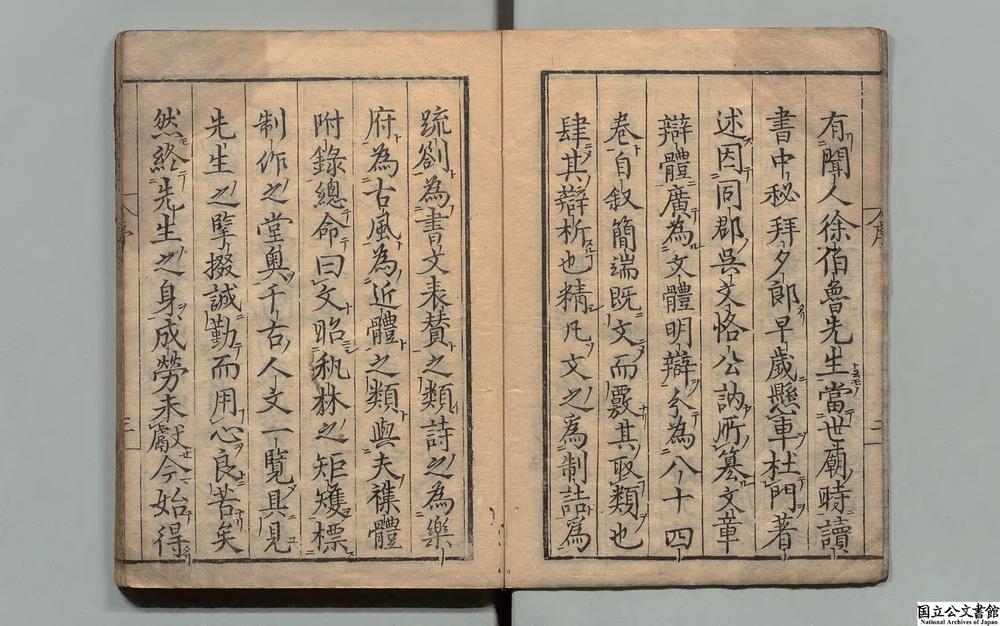 有聞人徐伯魯先生當世廟時讀
書中秘拜夕郎早歲懸車杜門著
述因同郡吳文恪公訥所纂文章
辯體廣為文體明辯分為八十四
卷自叙簡端既文而覈其取類也
肆其辯析也精凡文之為制誥為
䟽劄為書文表賛之類詩之為樂
府為古風為近體之類與夫襍體
附錄總命曰文昭秇林之矩矱標
制作之堂奥千古人文一覽具見
先生之揅掇誠勤而用心良苦矣
然終先生之身成勞未獻今始得
序
二
序
三
国立公文書館
National Archives of Japan